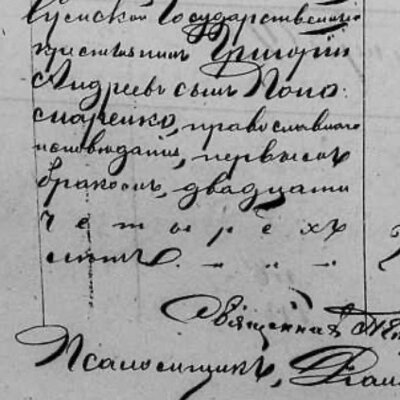 Сумской Государственный
крестьянин Григорій
Андреевъ сынъ Поно-
маренко, православнаго
исповѣданія, первымъ
бракомъ, двадцати
четырехъ
лѣтъ.
Священникъ
Псаломщикъ,